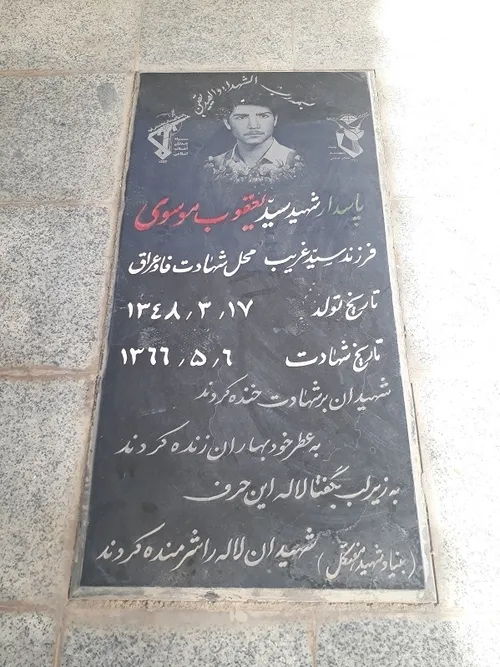 بسم رب الشهداء والصدیقین
پاسدار شهید سیّد یعقوب موسوی
فرزند سیّد غریب محل شهادت فاو عراق
تاریخ تولد ۱۳۴۸٫۳٫۱۷
تاریخ شهادت ۱۳۶۶٫۵٫۶
شهیدان بر شهادت خنده کردند
به عطر خود بهاران زنده کردند
به زیر لب بگفتا لاله این حرف
شهیدان لاله را شرمنده کردند (بنیاد شهید